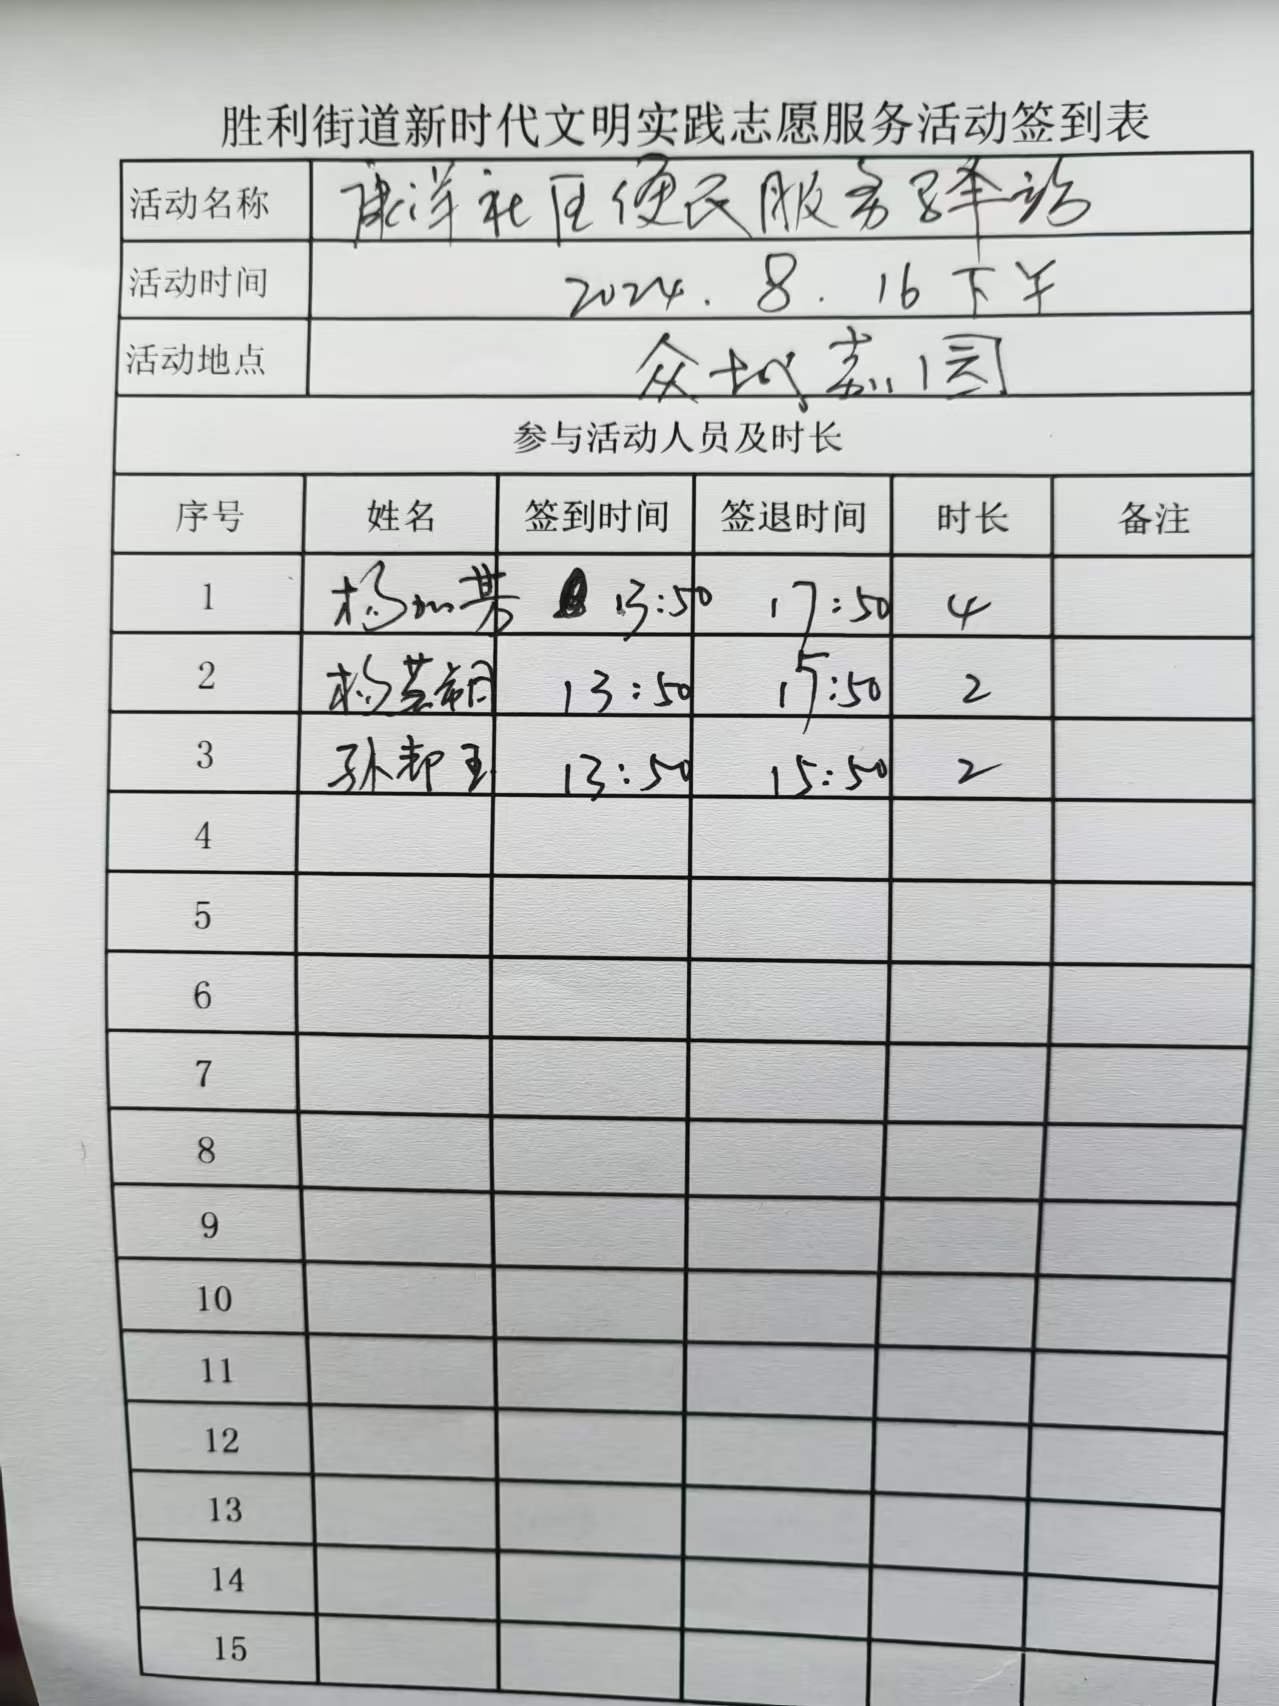 胜利街道新时代文明实践志愿服务活动签到表
活动名称 康洋社区便民服务驿站
活动时间 2024.8.16下午
活动地点 众城嘉园
参与活动人员及时长
序号 姓名 签到时间 签退时间 时长 备注
1 杨 13:50 17:50 4
2 杨 13:50 15:50 2
3 孙 13:50 15:50 2
4
5
6
7
8
9
10
11
12
13
14
15